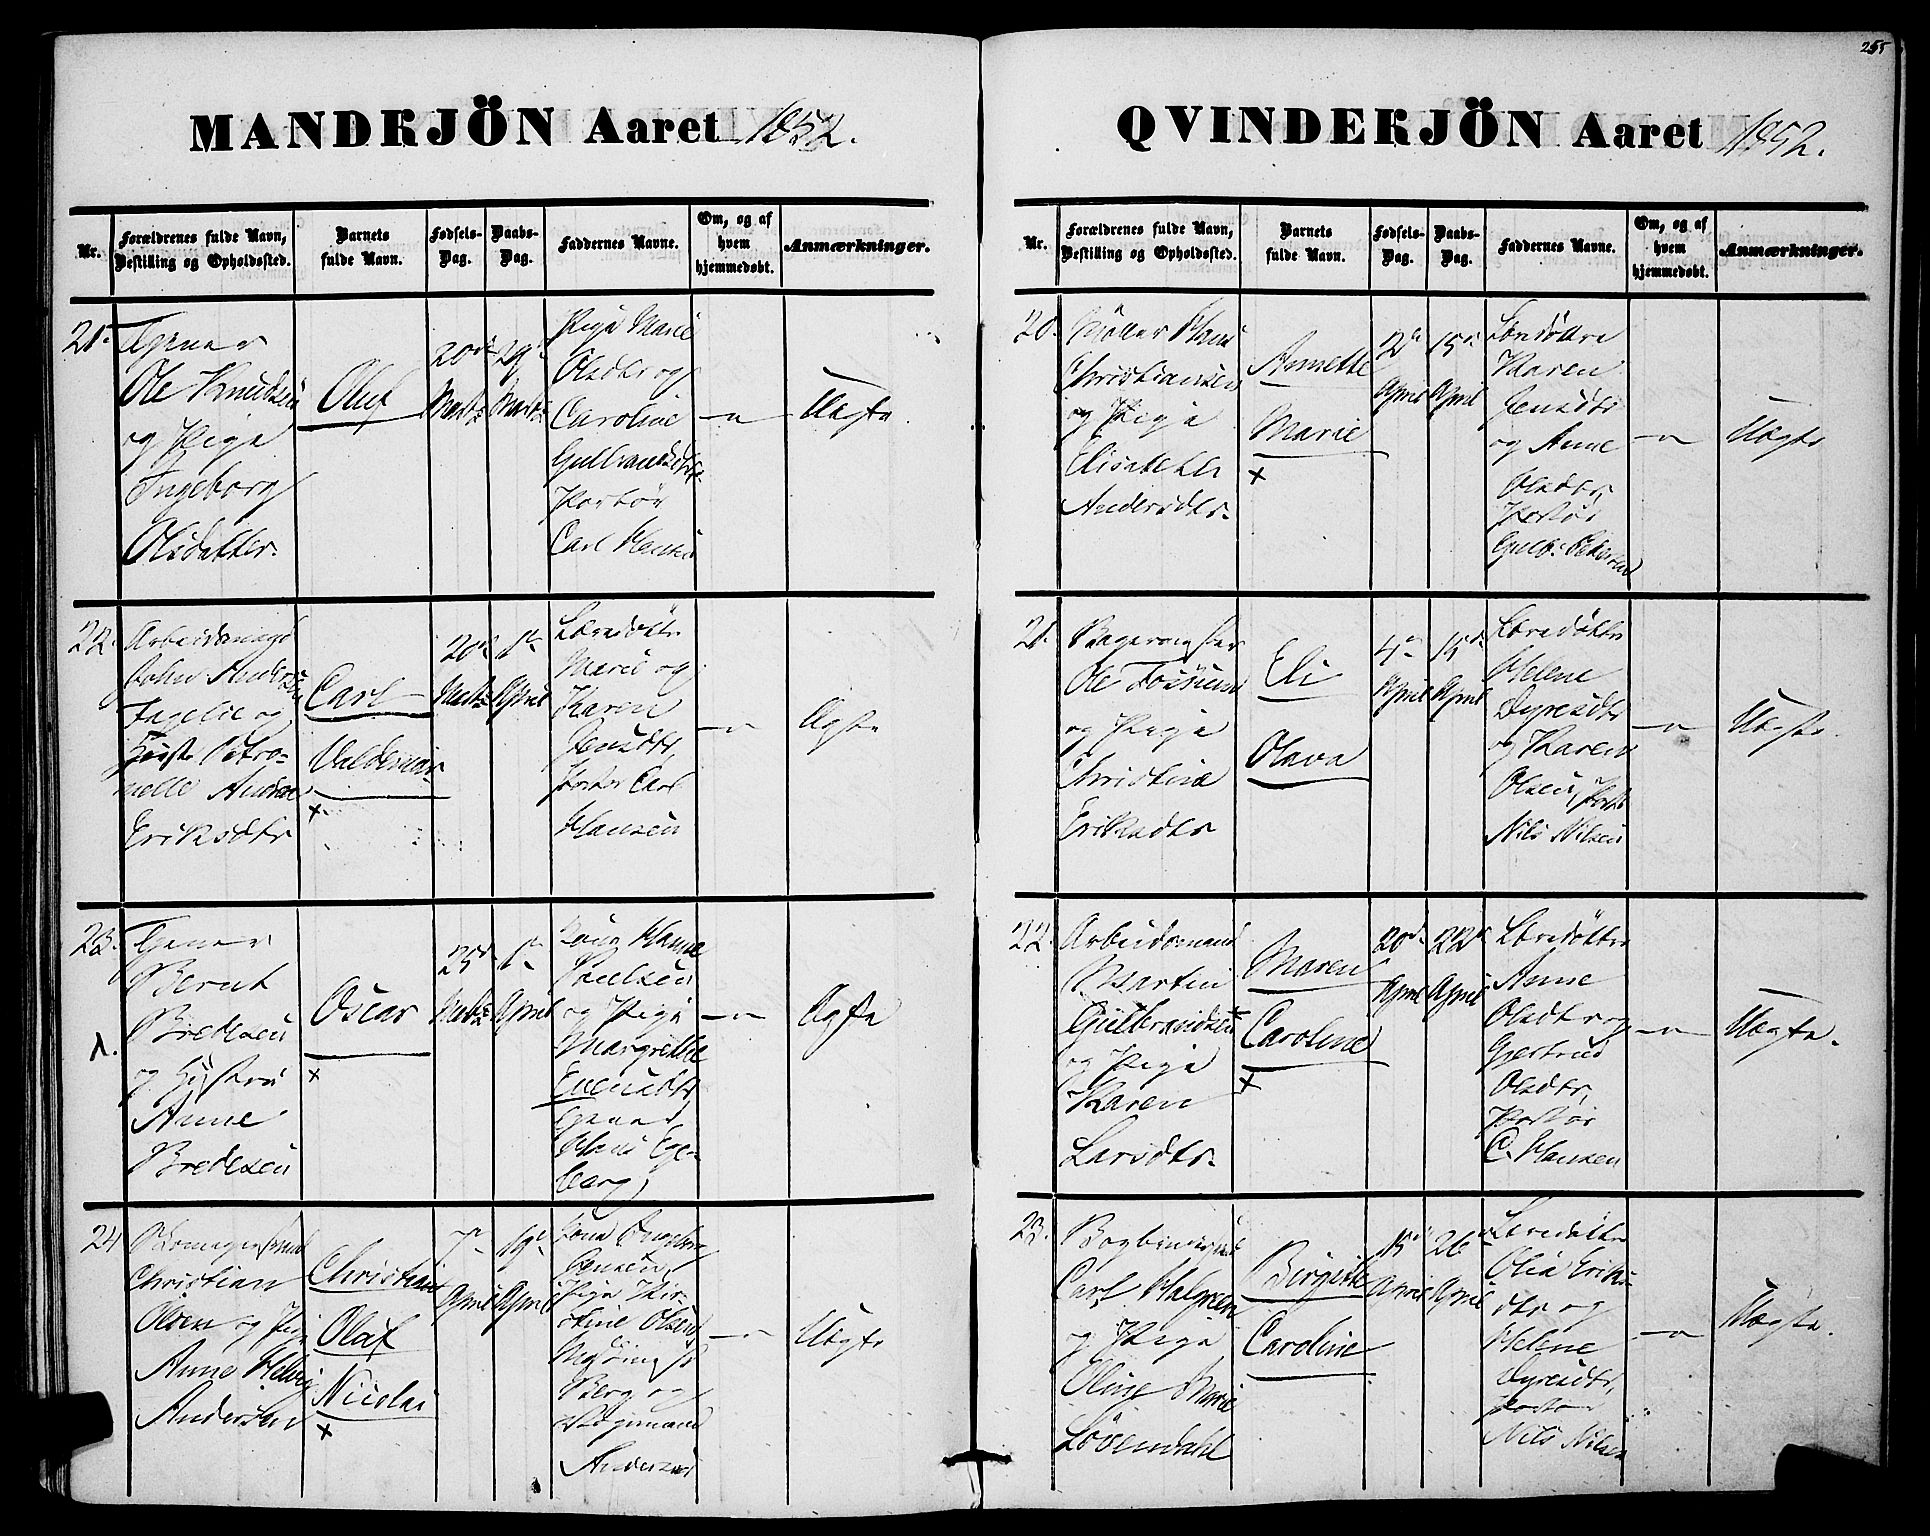 255
MANDKJÖN Aaret 1852.
Nr.
Forældrenes fulde Navn,
Bestilling og Opholdssted.
Barnets
fulde Navn.
Fødsels-
Dag.
Daabs-
Dag.
Faddernes Navne.
Om, og af
hvem
hjemmedøbt.
Anmærkninger.
21.
Tjener
Ole Knudsen
og Pige
Ingeborg
Olsdatter.
Oluf
20de
Marts
29de
Marts
Pige Marie
Olsdtr og
Caroline
Portør
Carl Hansen
Uægte
22.
Arbeidsmand
John Anders
og
Petro-
nelle
Eriksdtr
Carl
Valdemar
×
20de
Marts
1ste
April
Marie og
Karen
Jensdtr,
Portør Carl
Hansen
Ægte
23.
Tjener
Bernt
Bredesen
og Hustru
Anne
Bredesen
Oscar
×
25de
Marts
1ste
April
Kone Hanne
Poulsen
og Pige
Margrethe
Evensdtr
Tjener
Hans Ege-
berg,
Ægte
24
Christian
Olsen og Pige
Anne Helvig
Andersen
Christian
Olaf
Nicolai
×
7de
April
19de
April
Kone Ingeborg
Jensen,
Pige Kir-
stine Olsen,
Berg og
Andersen
Uægte
QVINDEKJÖN Aaret 1852.
Nr.
Forældrenes fulde Navn,
Bestilling og Opholdssted.
Barnets
fulde Navn.
Fødsels-
Dag.
Daabs-
Dag.
Faddernes Navne.
Om, og af
hvem
hjemmedøbt.
Anmærkninger.
20.
Møller Hans
Christiansen
og Pige
Elisabeth
Andersdtr.
Annette
Marie
×
2de
April
15de
April
Karen
Jensdtr
og Anne
Olsdtr,
Portør
Gulb: Pedersen
Uægte
21.
Bagermester
Ole Fossum
og Pige
Christine
Eriksdtr
Eli
Olava
4de
April
15de
April
Helene
Dyresdtr
og Karen
Olsen,
Nils Nilsen
Uægte.
22.
Arbeidsmand
Martin
Gulbrandsen
og Pige
Karen
Larsdtr.
Maren
Caroline
×
20de
April
22de
April
Anne
Olsdtr og
Gjertrud
Olsdtr,
Portør
C. Hansen
Uægte.
23.
Carl Halgreen
og Pige
Oline Marie
Løvendahl
Birgitte
Caroline
15de
April
26
April
Olia Eriks-
dtr og
Helene
Dyresdtr,
Portør
Nils Nilsen
Uægte.